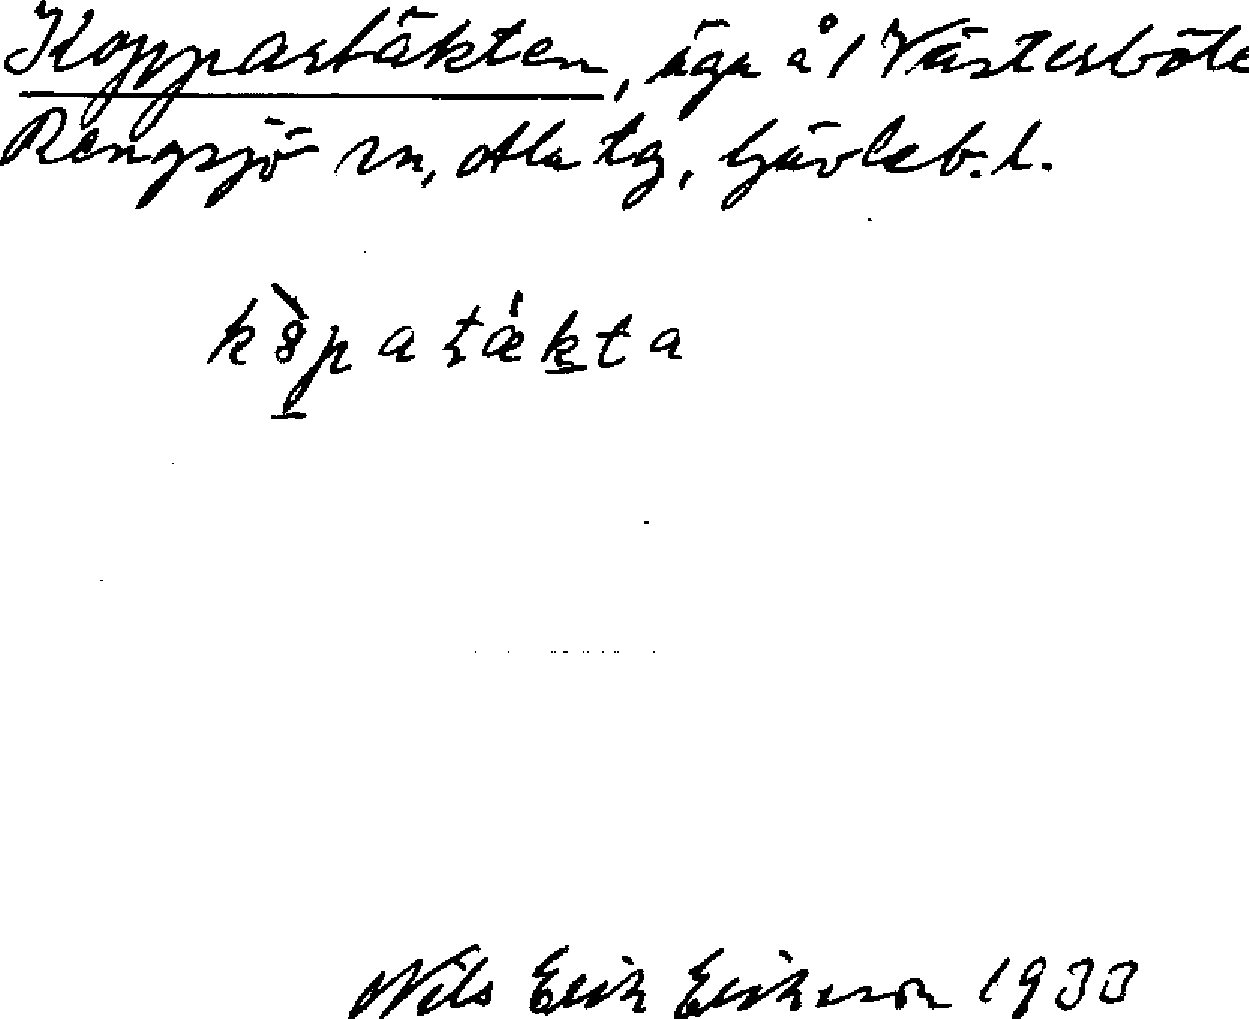 Koppartäkten, äga å 1 Västerböle
Rengsjö sn, Ala tg, Gävleb. l.
Nils Erik Eriksson 1933